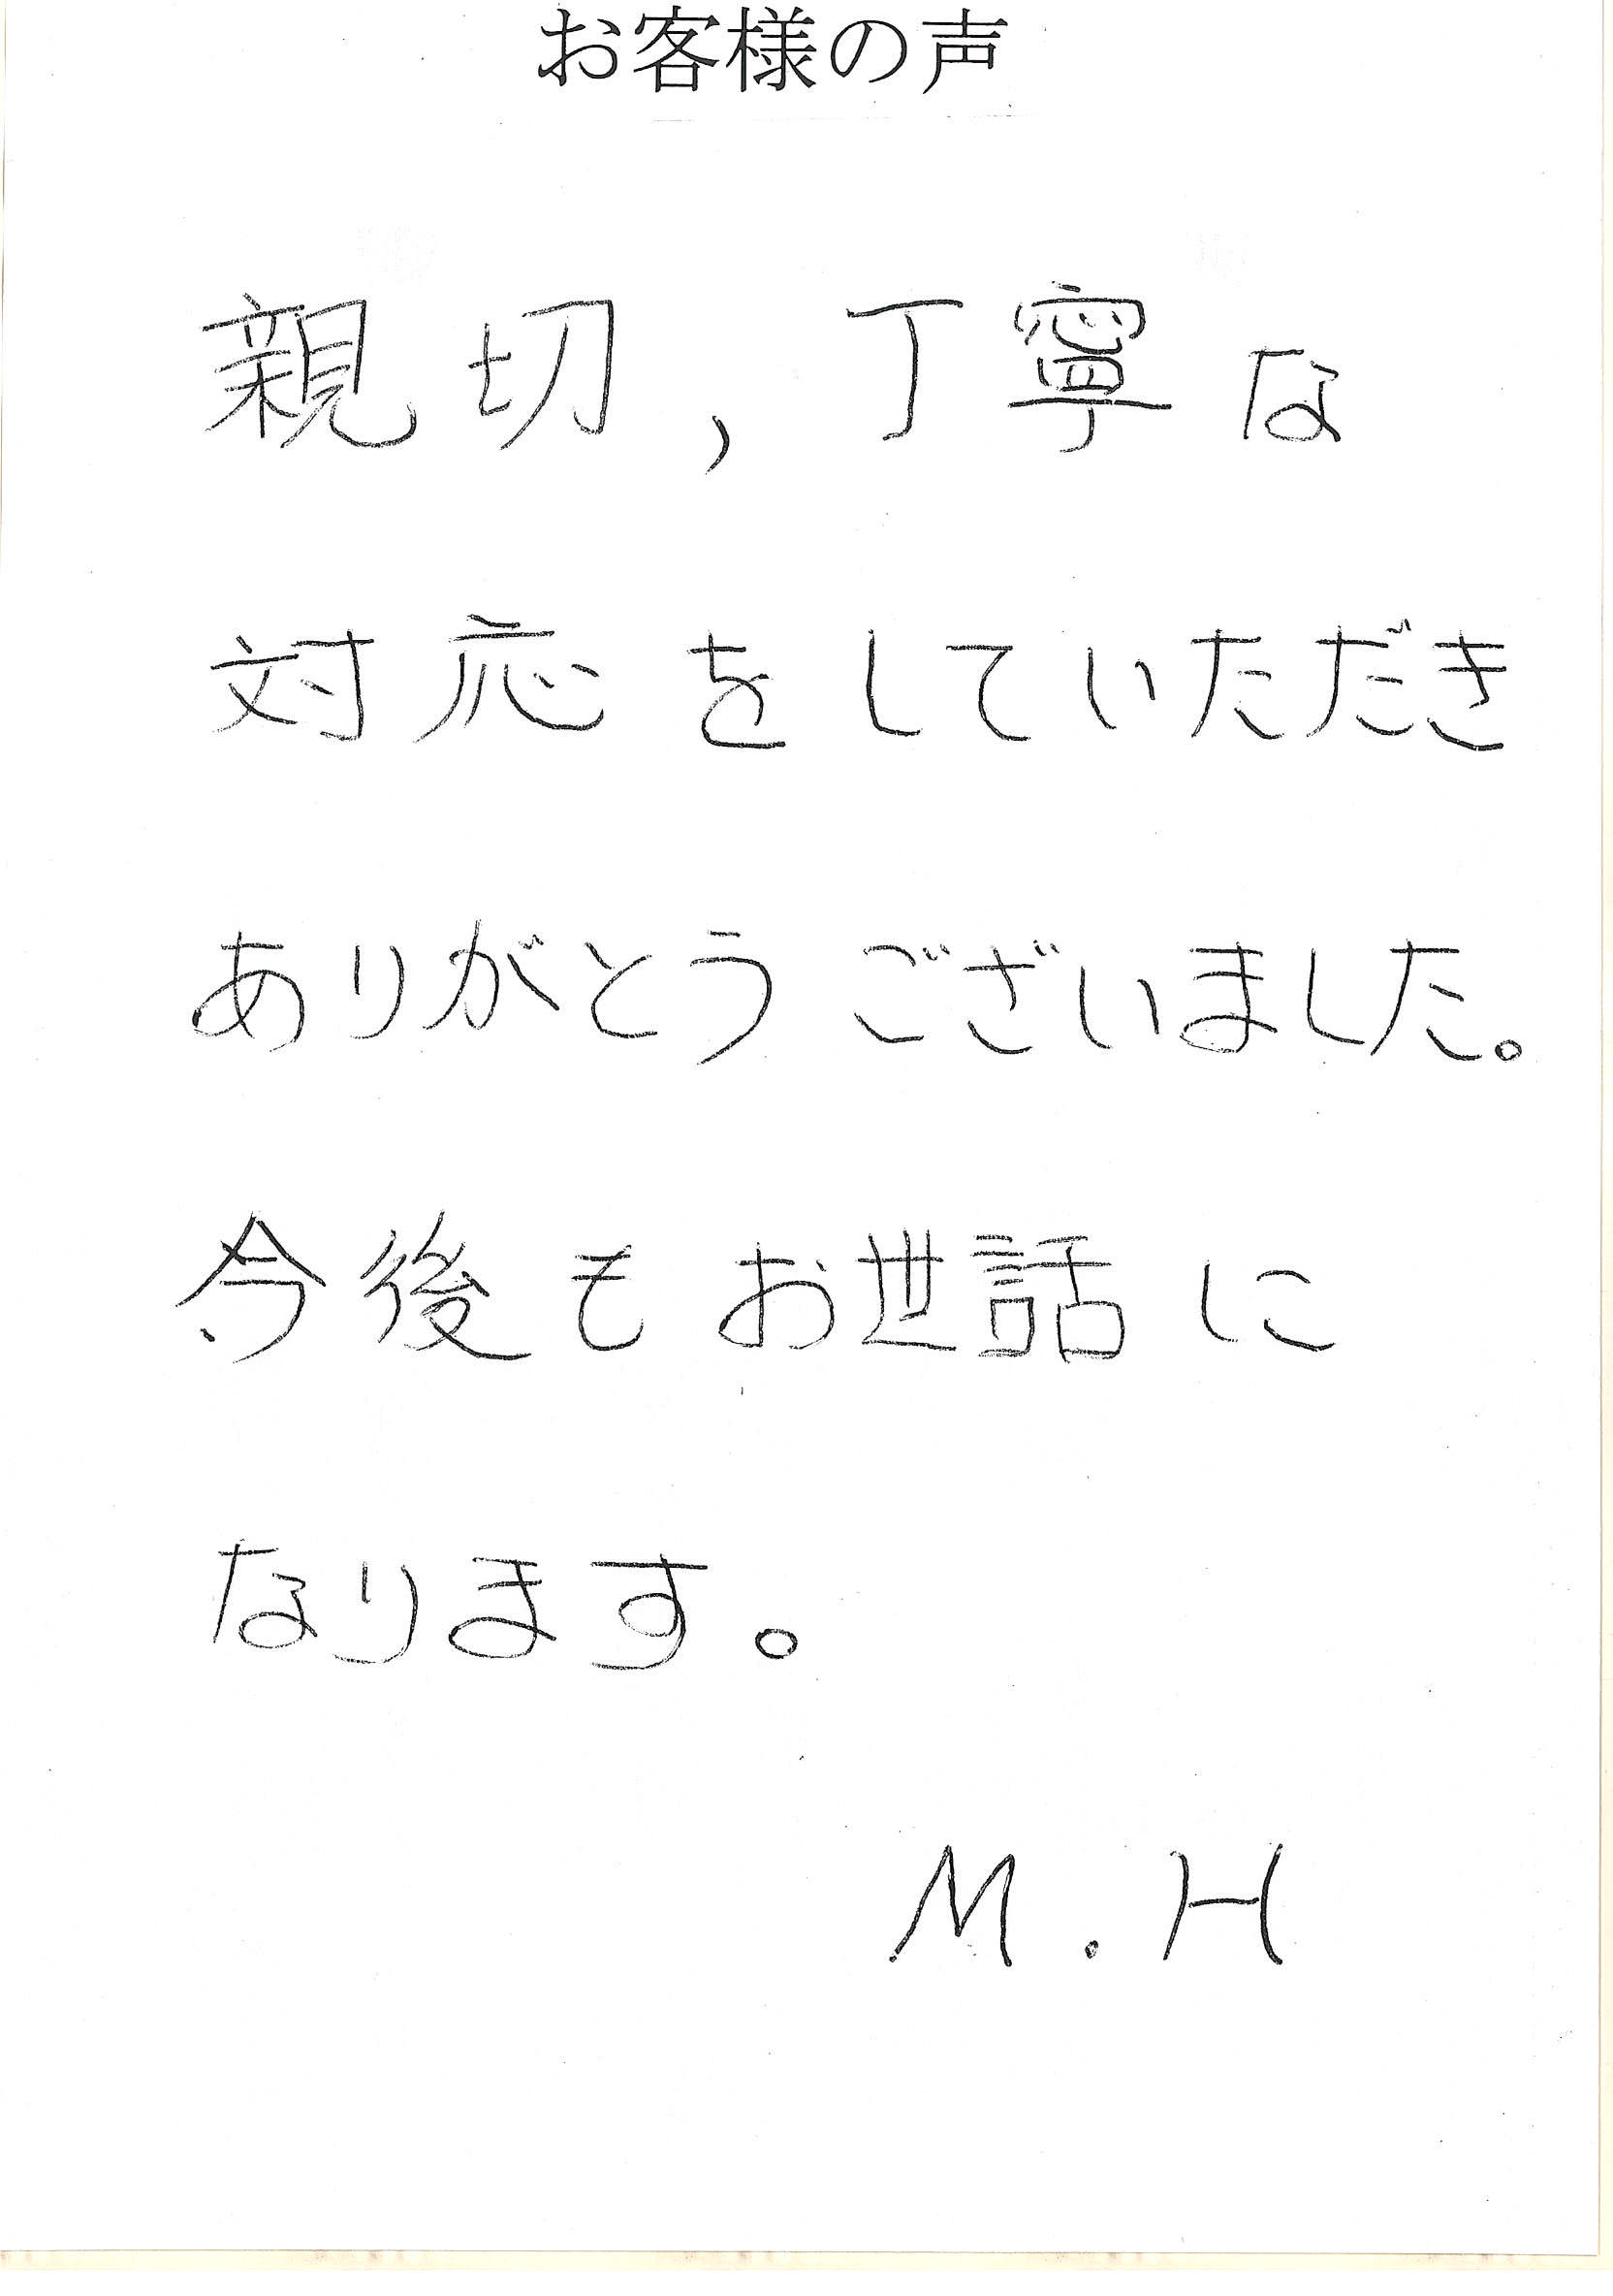 お客様の声
親切,丁寧な
対応をしていただき
ありがとうございました。
今後もお世話に
なります。
M.H